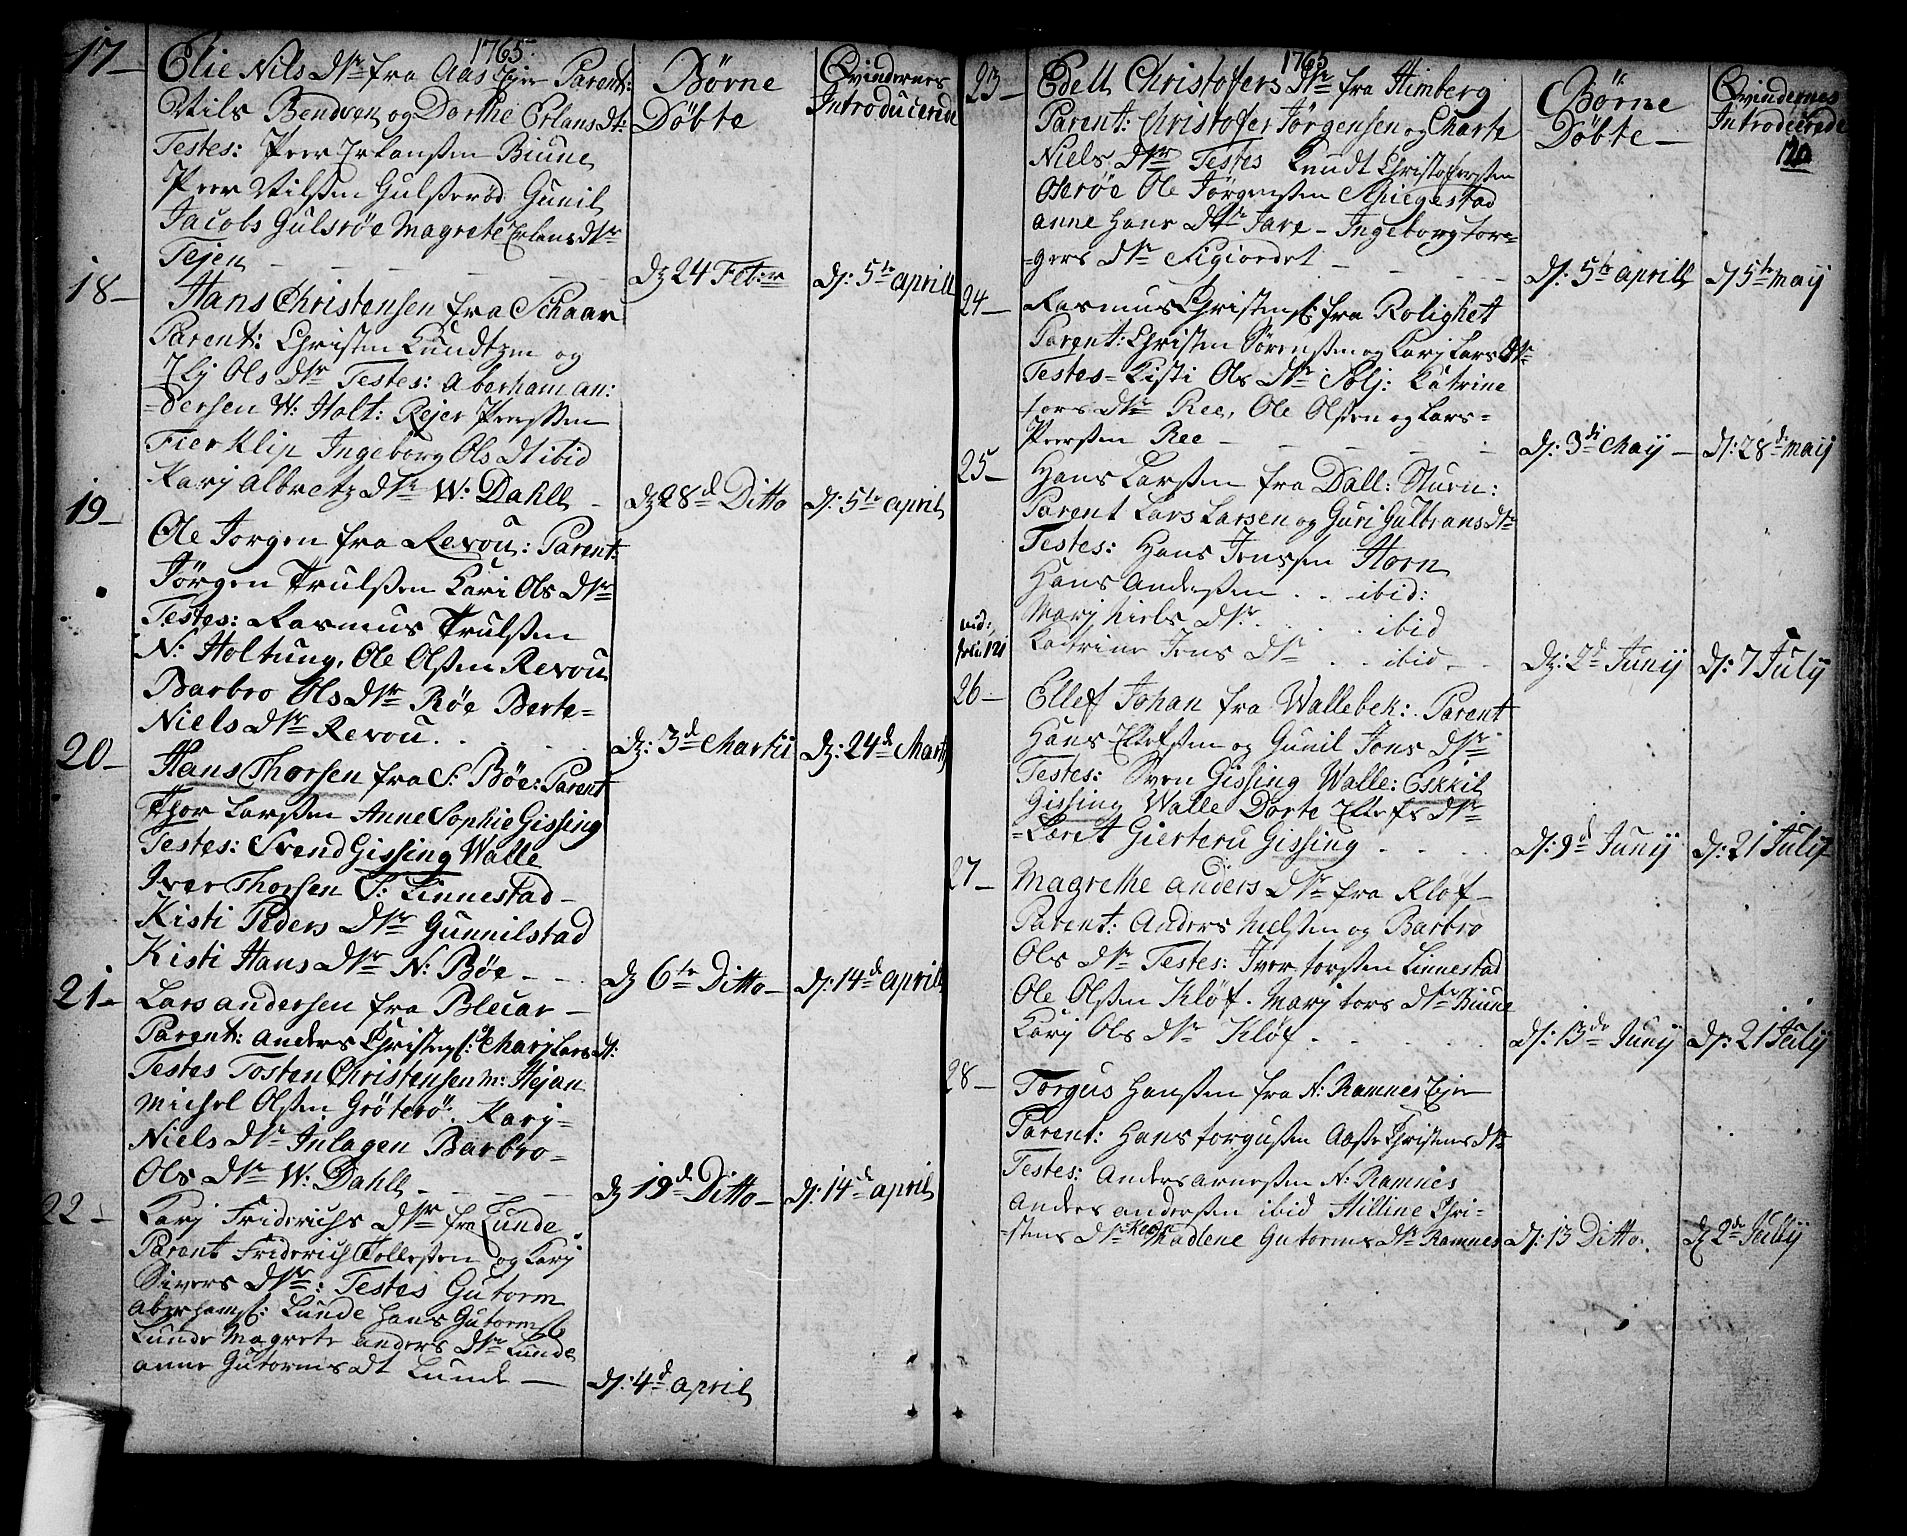 1765
17 Elie Nils Dtr fra Aas Ejer Parent:
Nils Bendsen og Dorthe Erlans dtr
Testes: Peer Erlanssen Biune
Peer Nilssen Gulsserød Gunil
Jacobs Gulsrøe Magrete Erlens dtr
Tejen
Børne
Döbte
Qvindernes
Introducerede
D 24 Febr: D: 5te aprill
18 Hans Christensen fra Schaar
Parent: Christen Knudtzen og
Elj Ols Dtr Testes: Aberham an:
dersen W: Holt: Rejer Peerssen
Fierklip Ingeborg Ols Dt ibid
Karj Albretz Dtr W: Dahle
D 28d Ditto D: 5te april
19 Ole Jorgen fra Revou: Parent:
Jörgen Trulssen Kari Ols Dtr
Testes: Rasmus Trulssen
N: Holtung, Ole Olssen Revou
Barbro Ols Dtr Røe Berte
Niels Dtr Revou
D: 3d Martii D: 24d Marti
20 Hans Thorsen fra S: Bøe: Parent
Thor Larssen Anne Sophie Gissing
Testes: Svend Gissing Walle
Iver Thorsen S: Linnestad
Kisti Peders Dtr Gunnilstad
Kisti Hans Dtr N: Bøe
D 6te Ditto D: 14d aprill
21 Lars andersen fra Blecar
Parent: anders Christens: Marj Lars dt:
Testes Tosten Christensen m: Hejan
Michel Olssen Gröterö: Karj
Niels Dtr Inlagen Barbro
Ols Dtr W: Dahle
D 19d Ditto D: 14d april
22 Karj Friderichs Dtr fra Lunde
Parent Friderich Tollessen og Karj
Sivers Dtr: Testes Gutorm
Aberhams: Lunde Hans Gutorms
Lunde Magrete anders Dtr Lunde
anne Gutorms Dt Lunde
D: 4d april
1765
120
23 Edell Christofers Dtr fra Himberg
Parent: Christofer Jörgensen og Marte
Niels Dtr Testes Knudt Christoferssen
Oserøe Ole Jörgenssen Spiegestad
anne Hans Dtr Jare Ingeborg Tor
gers Dtr Figiordet
Børne
Döbte
Qvindernes
Introducerede
D: 5te aprill D 5te maij
24 Rasmus Christens: fra Rolighet
Parent: Christen Sörenssen og Karj Lars Dtr
Testes Kisti Ols Dtr Solj: Katrine
Tors Dtr Ree, Ole Olssen og Lars
Peerssen Ree
D: 3di Maij D: 28d maij
25 Hans Larssen fra Dall: Stuen:
Parent Lars Larsen og Guri Gulbrans Dtr
Testes: Hans Jenssen Horn
Hans Anderssen ibid:
Marj Niels Dtr ibid
Katrine Jens Dtr ibid
vid:
folio 121
D: 2d Junij D: 7 Julij
26 Ellef Johan fra Wallebek: Parent
Hans Ellefssen og Gunil Jons Dtr
Testes: Sven Gissing Walle: Eskkil
Gissing Walle Dorte Ellefs Dtr
Gissing
D: 9d Junij D: 21 Julij
27 Magrethe anders Dtr fra Kløf
Parent: Anders Nielssen og Barbro
Ols Dtr Testes: Iver Torssen Linnestad
Ole Olssen Kløf. Marj Tors Dtr Biune
Karj Ols Dtr Kløf
D: 13de Junij D: 21 Julij
28 Torgus Hanssen fra N: Ramnes Ejer
Parent: Hans Torgussen Aasse Christens Dtr
Testes: Anders Arnessen N: Ramnes
Anders anderssen ibid Hilline Chri
stens Dtr Madlene Gutorms Dtr Ramnes
D: 13 Ditto D 2de Julij